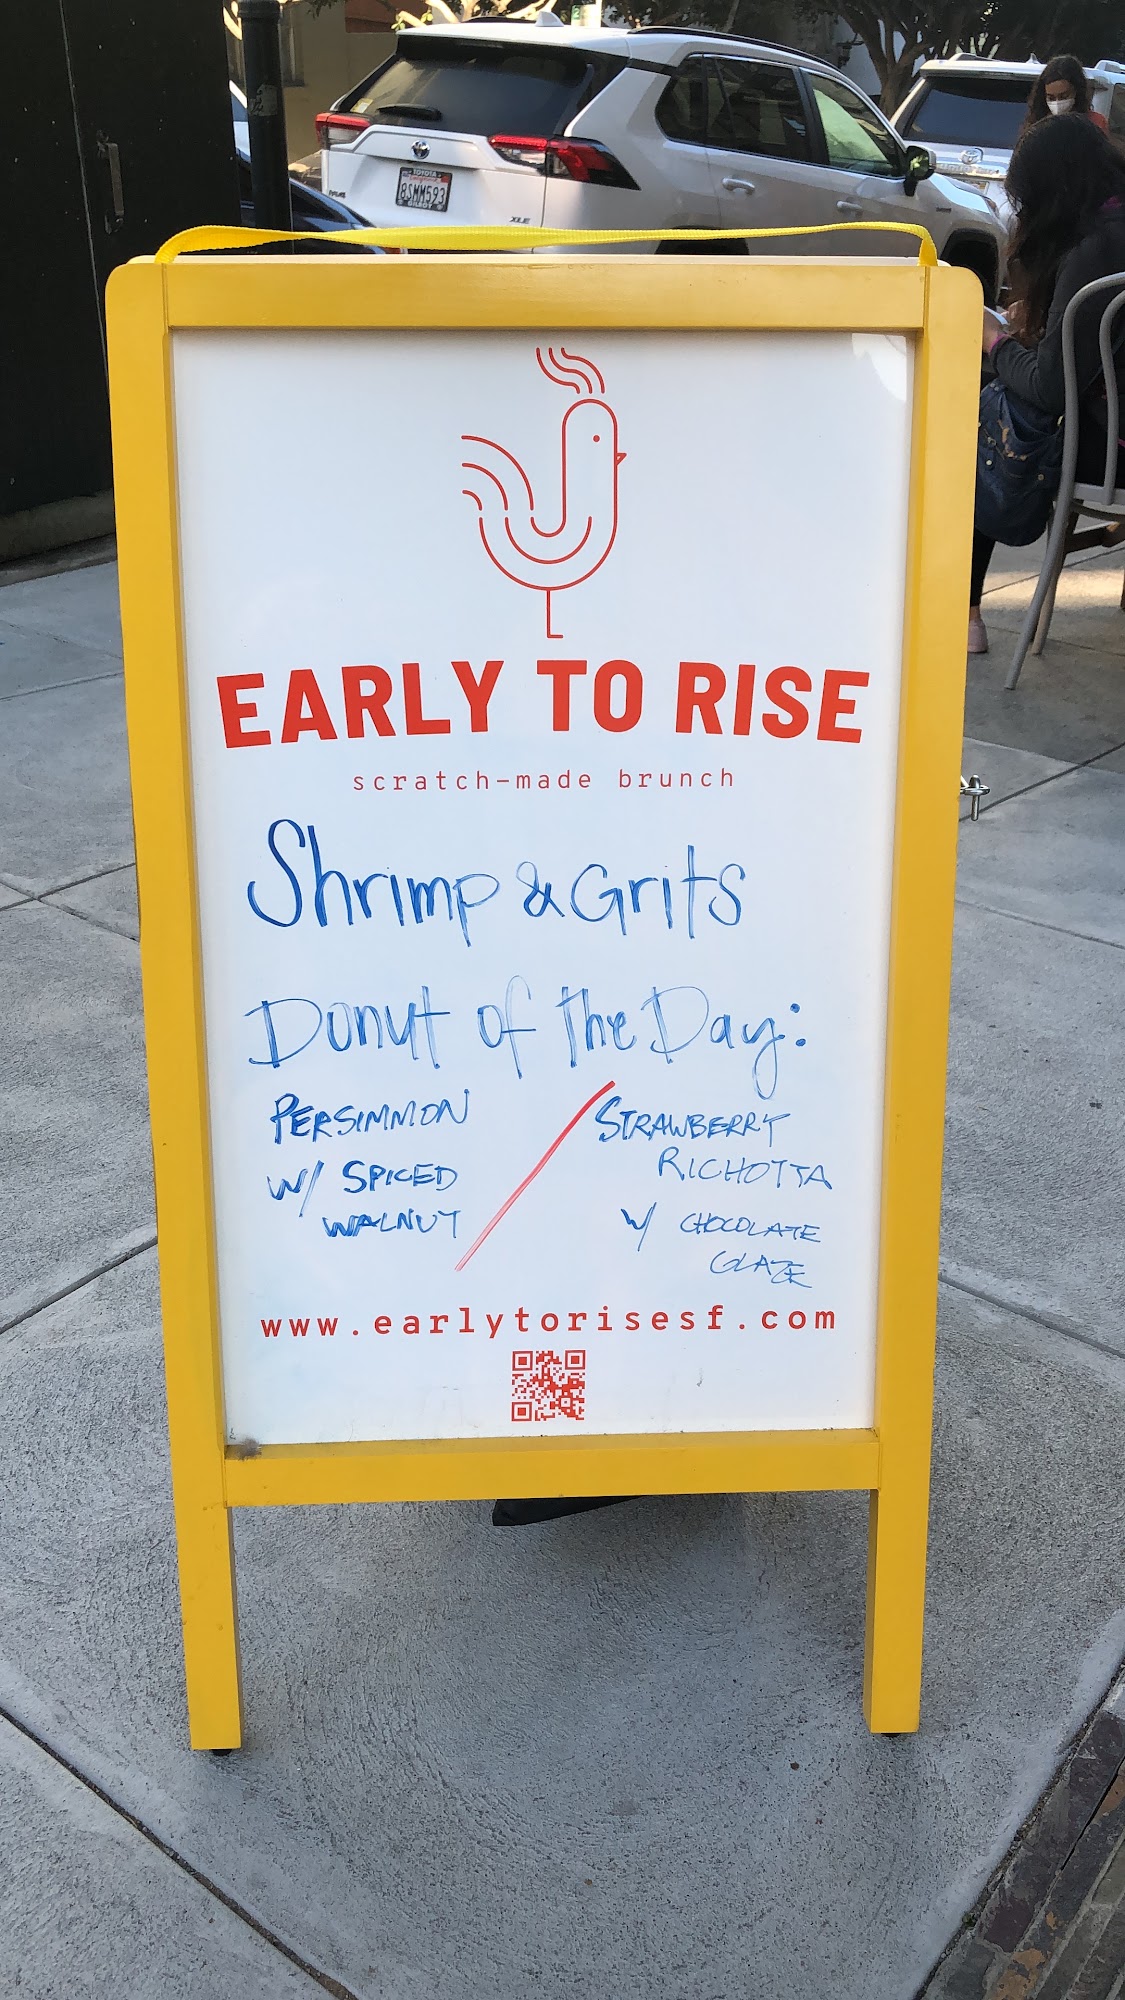 TOYOTA
8SMM593
GILROY
XLE
EARLY TO RISE
scratch-made brunch
Shrimp & Grits
Donut of the Day:
PERSIMMON
W/ SPICED
WALNUT
STRAWBERRY
RICHOTTA
W/ CHOCOLATE
GLAZE
www.earlytorisesf.com